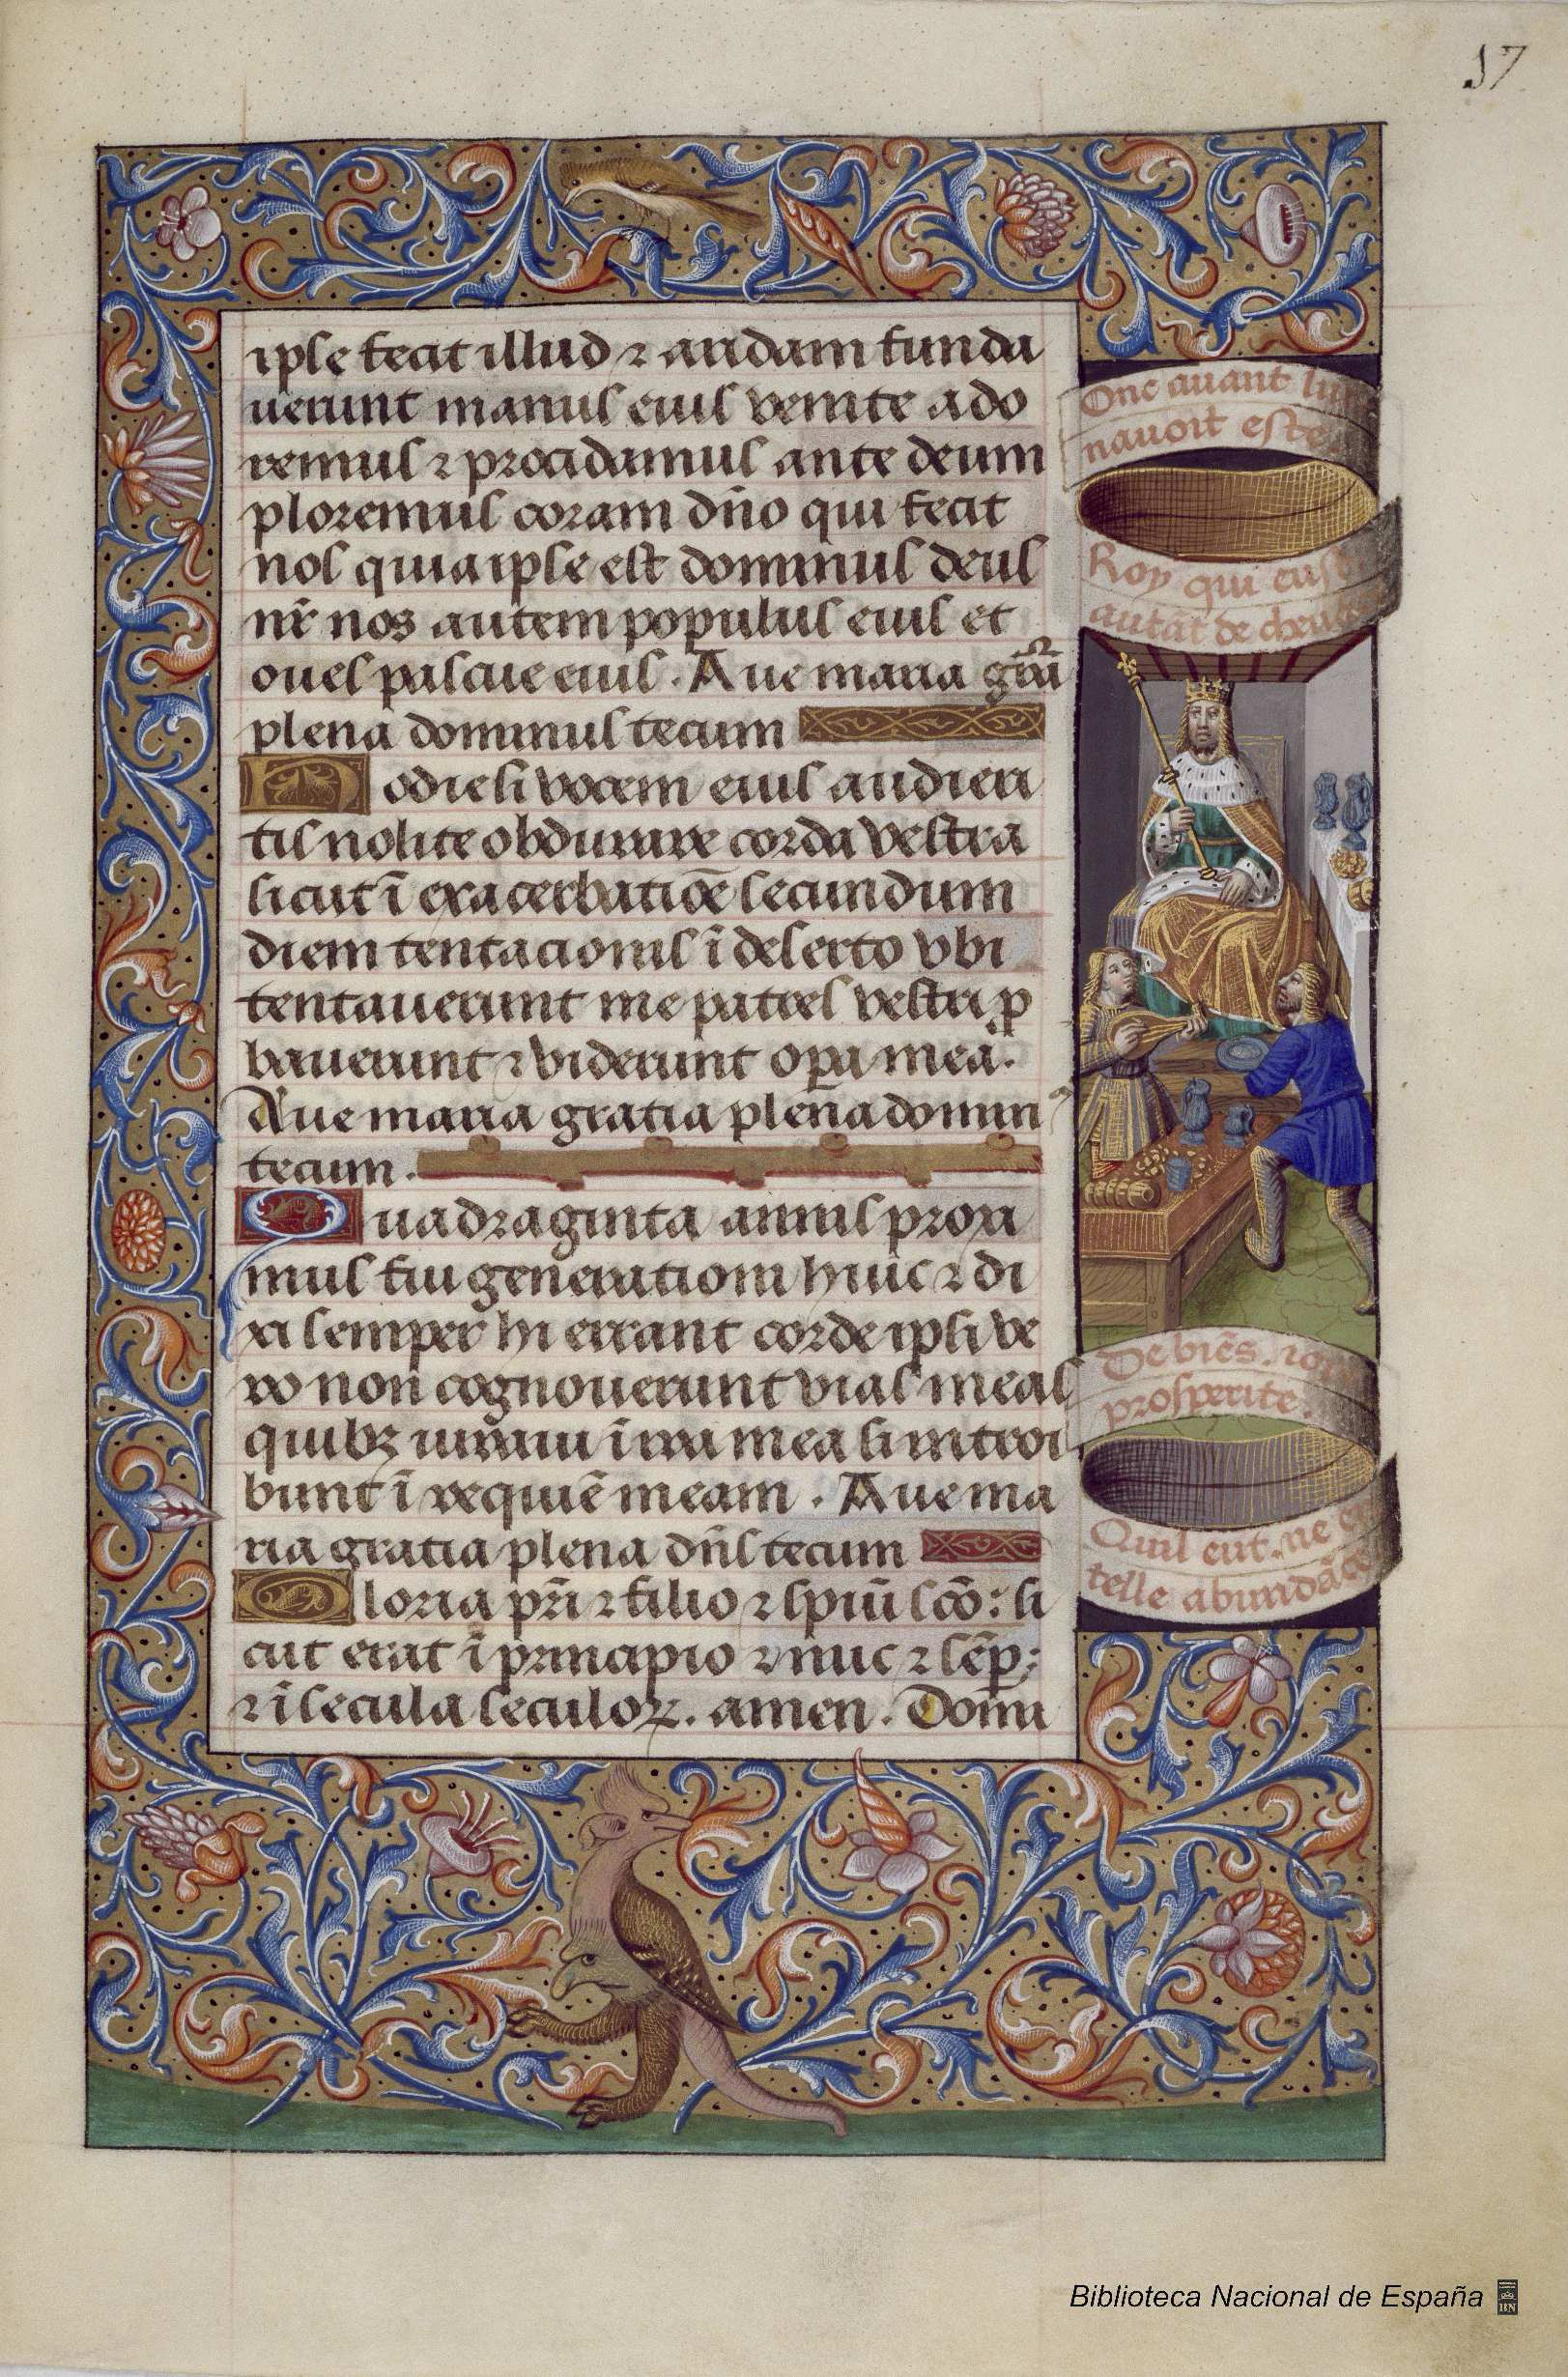 57
ipse fecit illud ⁊ aridam funda
uerunt manus eius venite ado
remus ⁊ procidamus ante deum
ploremus coram dño qui fecit
nos quia ipse est dominus deus
nr̄ nos autem populus eius et
oues pascue eius . Aue maria gr̄a
plena dominus tecum
Hodie si vocem eius audieri
tis nolite obdurare corda vestra
sicut ī exacerbatiōe secundum
diem tentacionis ī deserto vbi
tentauerunt me patres vestri ꝓ
bauerunt ⁊ viderunt oꝑa mea .
Aue maria gratia plena domin
tecum .
Quadraginta annis proxi
mus fui generationi huic ⁊ di
xi semper hi errant corde ipsi ve
ro non cognouerunt vias meas
quibꝫ iuraui ī ira mea si introi
bunt ī requiē meam . Aue ma
ria gratia plena dñs tecum
Gloria pr̄i ⁊ filio ⁊ spiūi scō : si
cut erat ī principio ⁊ nūc ⁊ sēp :
⁊ ī secula seculoꝝ . amen . Domi
Onc auant luy
nauoit este
Roy qui eust
autāt de cheua
De biēs . ioye
prosperite .
Quil eut . ne
telle abundāce
Biblioteca Nacional de España
BN